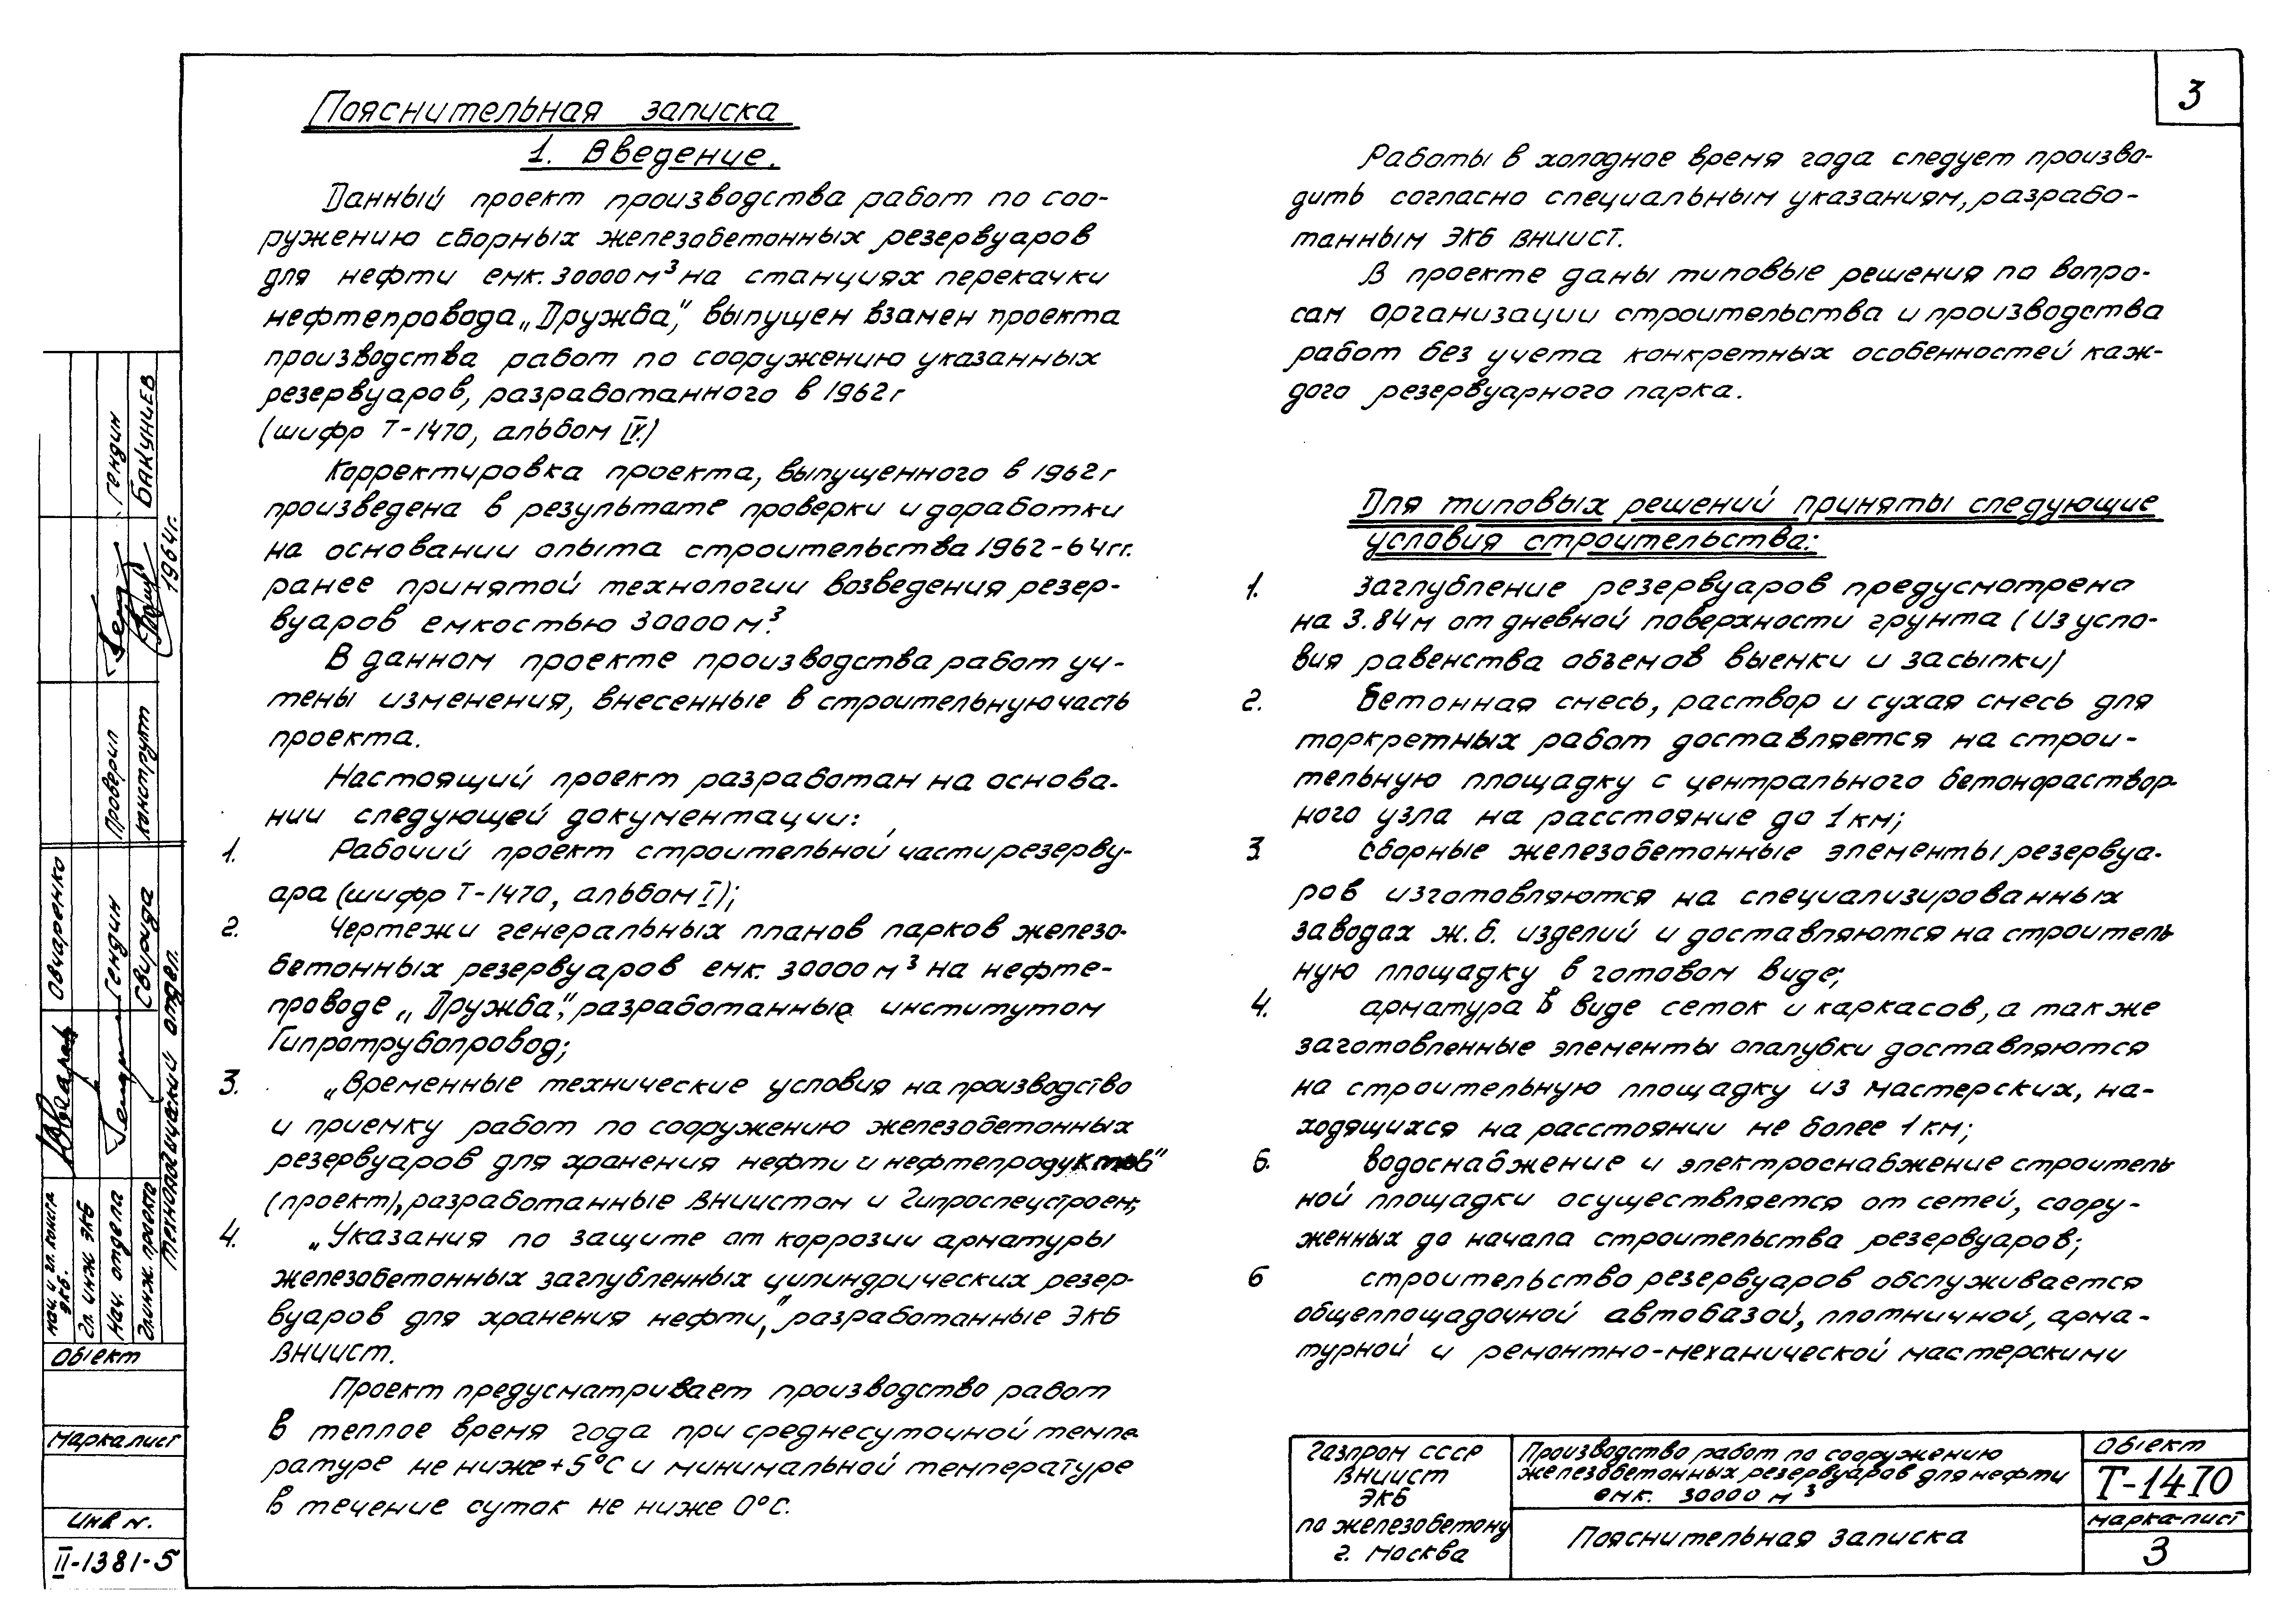 3
Пояснительная записка
1. Введение.
Данный проект производства работ по соо-
ружению сборных железобетонных резервуаров
для нефти емк. 30000 м³ на станциях перекачки
нефтепровода „Дружба”, выпущен взамен проекта
производства работ по сооружению указанных
резервуаров, разработанного в 1962 г
(шифр Т-1470, альбом IV.)
Корректировка проекта, выпущенного в 1962 г
произведена в результате проверки и доработки
на основании опыта строительства 1962-64 гг.
ранее принятой технологии возведения резер-
вуаров емкостью 30000 м³.
В данном проекте производства работ уч-
тены изменения, внесенные в строительную часть
проекта.
Настоящий проект разработан на основа-
нии следующей документации:
1. Рабочий проект строительной части резерву-
ара (шифр Т-1470, альбом I);
2. Чертежи генеральных планов парков железо-
бетонных резервуаров емк. 30000 м³ на нефте-
проводе „Дружба”, разработанные институтом
Гипротрубопровод;
3. „Временные технические условия на производство
и приемку работ по сооружению железобетонных
резервуаров для хранения нефти и нефтепродуктов”
(проект), разработанные ВНИИСТом и Гипроспецстроем;
4. „Указания по защите от коррозии арматуры
железобетонных заглубленных цилиндрических резер-
вуаров для хранения нефти”, разработанные ЭКБ
ВНИИСТ.
Проект предусматривает производство работ
в теплое время года при среднесуточной темпе
ратуре не ниже +5°С и минимальной температуре
в течение суток не ниже 0°С.
Работы в холодное время года следует произво-
дить согласно специальным указаниям, разрабо-
танным ЭКБ ВНИИСТ.
В проекте даны типовые решения по вопро-
сам организации строительства и производства
работ без учета конкретных особенностей каж-
дого резервуарного парка.
Для типовых решений приняты следующие
условия строительства:
1. Заглубление резервуаров предусмотрена
на 3.84 м от дневной поверхности грунта (Из усло-
вия равенства объемов выемки и засыпки)
2. Бетонная смесь, раствор и сухая смесь для
торкретных работ доставляется на строи-
тельную площадку с центрального бетонораствор-
ного узла на расстояние до 1 км;
3. Сборные железобетонные элементы резервуа-
ров изготовляются на специализированных
заводах ж.б. изделий и доставляются на строитель
ную площадку в готовом виде;
4. арматура в виде сеток и каркасов, а также
заготовленные элементы опалубки доставляются
на строительную площадку из мастерских, на-
ходящихся на расстоянии не более 1 км;
5. водоснабжение и электроснабжение строитель
ной площадки осуществляется от сетей, соору-
женных до начала строительства резервуаров;
6 строительство резервуаров обслуживается
общеплощадочной автобазой, плотничной, арма-
турной и ремонтно-механической мастерскими
Газпром СССР
ВНИИСТ
ЭКБ
по железобетону
г. Москва
Производство работ по сооружению
железобетонных резервуаров для нефти
емк. 30000 м³
Пояснительная записка
Объект
Т-1470
марка-лист
3
Нач. и гл. констр
ЭКБ.
Овчаренко
Гл. инж ЭКБ
Нач. отдела
Гендин
Гл. инж. проекта
Свирида
Технологический отдел.
Проверил
Гендин
Конструкт
Бакуниев
1964 г.
Объект
Марка лист
Инв N.
II-1381-5